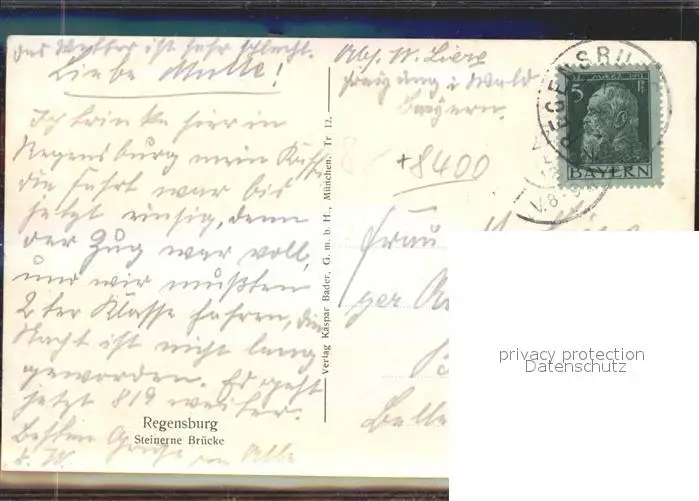 das Wetter ist sehr schlecht.
Liebe Mutter!
Ich trinke hier in
Regensburg mein Kaffe
die Fahrt war bis
jetzt einsig, denn
der Zug war voll,
und wir mußten
2ter Klasse fahren, die
Nacht ist nicht lang
geworden. Es geht
jetzt 819 weiter.
Besten
Regensburg
Steinerne Brücke
Verlag Kaspar Bader, G. m. b. H., München. Tr 12.
Abs. W.
i. Wald
Bayern.
+8400
Frau
REGENSBURG
5
BAYERN
privacy protection
Datenschutz